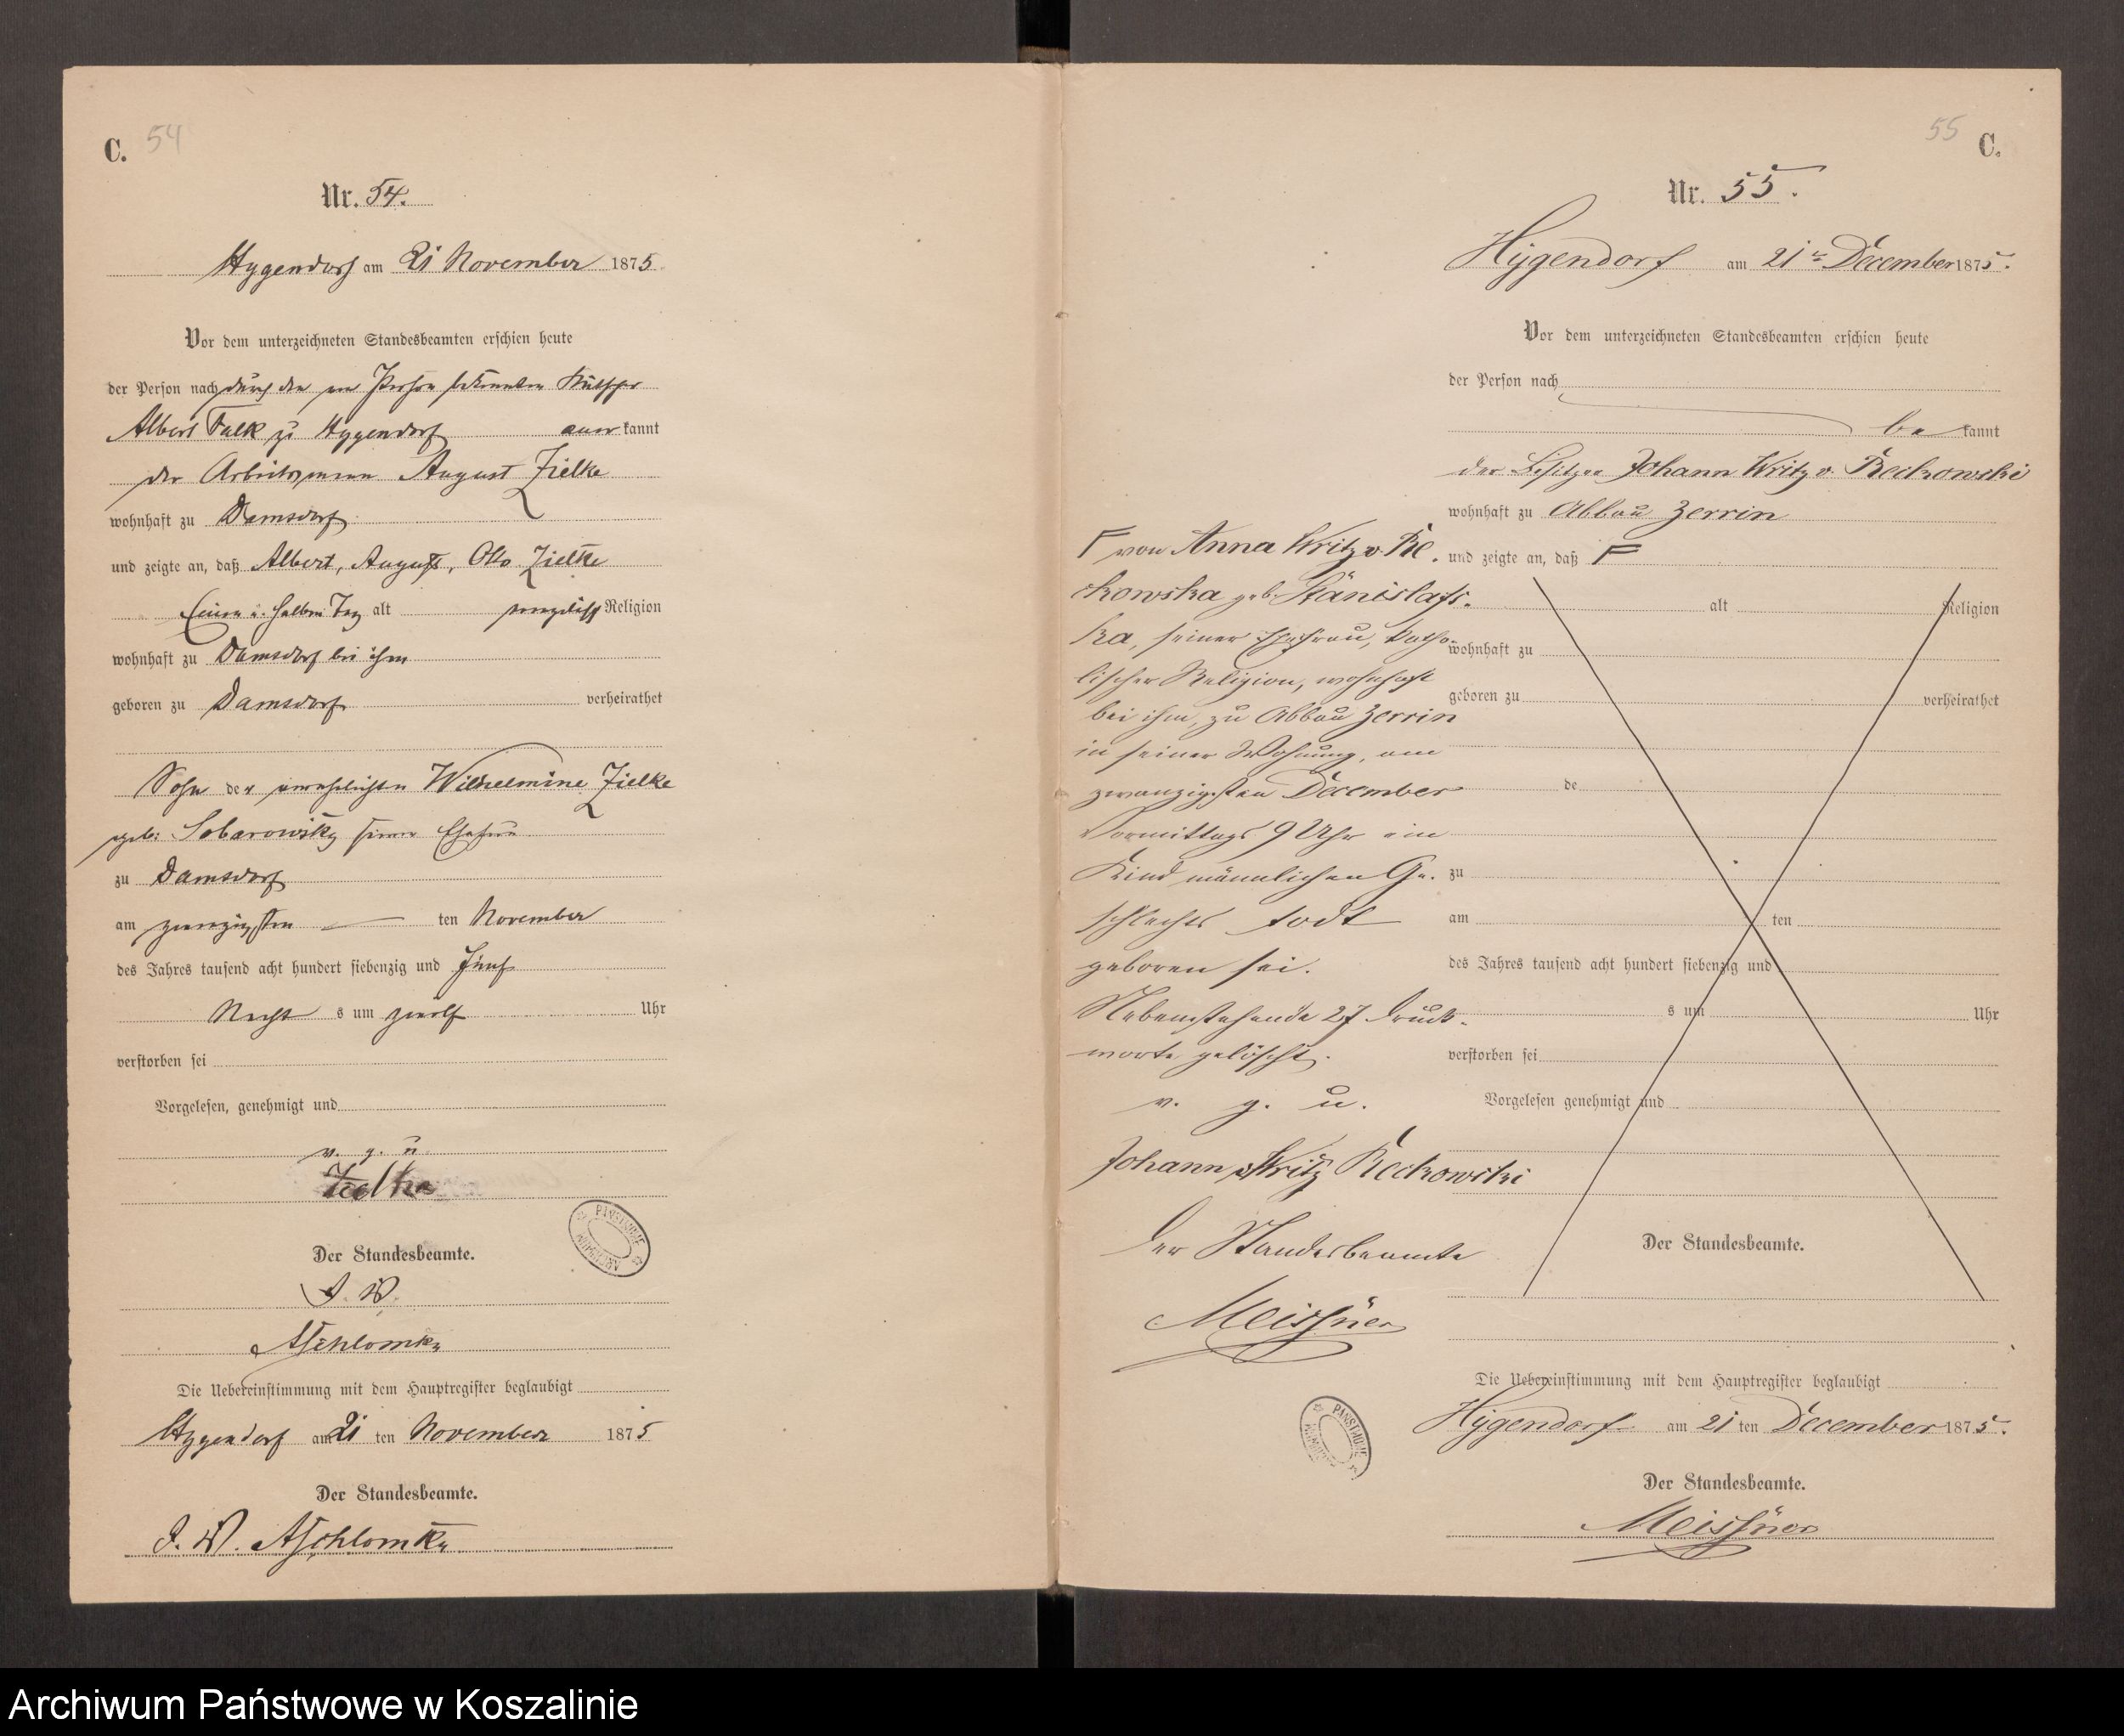 C. 54
Nr. 54.
Hygendorf am 21 November 1875.
Vor dem unterzeichneten Standesbeamten erschien heute
der Person nach durch den von Person bekannten
Albert Falk zu Hygendorf aner kannt
der Arbeitsmann August Zielke
wohnhaft zu Damsdorf
und zeigte an, daß Albert, August, Otto Zielke
Einen u. halben Tag alt evangelisch Religion
wohnhaft zu Damsdorf bei ihm
geboren zu Damsdorf verheirathet
Sohn der verehelichten Wilhelmine Zielke
geb: seiner Ehefrau
zu Damsdorf
am zwanzigsten ten November
des Jahres tausend acht hundert siebenzig und fünf
Nacht s um zwölf Uhr
verstorben sei
Vorgelesen, genehmigt und
v. g. u.
Zielke
Der Standesbeamte.
Die Uebereinstimmung mit dem Hauptregister beglaubigt
Hygendorf am 21 ten November 1875
Der Standesbeamte.
55 C.
Nr. 55.
Hygendorf am 21 December 1875.
Vor dem unterzeichneten Standesbeamten erschien heute
der Person nach
be kannt
der Besitzer Johann Writz v. Reckowski
wohnhaft zu Abbau Zerrin
und zeigte an, daß F
alt Religion
wohnhaft zu
geboren zu verheirathet
de
zu
am ten
des Jahres tausend acht hundert siebenzig und
s um Uhr
verstorben sei
Vorgelesen genehmigt und
F von Anna Writz v. Re.
ckowska geb.
ka, seiner Ehefrau, katho-
lischer Religion, wohnhaft
bei ihm, zu Abbau Zerrin
in seiner Wohnung, am
zwanzigsten December
Vormittags 9 Uhr ein
Kind männlichen Ge.
schlechts todt
geboren sei.
Nebenstehende 27 Druck-
worte gelöscht.
v. g. u.
Johann v Writz Reckowski
Der Standesbeamte
Meissner
Der Standesbeamte.
Die Uebereinstimmung mit dem Hauptregister beglaubigt
Hygendorf am 21 ten December 1875.
Der Standesbeamte.
Meissner
Archiwum Państwowe w Koszalinie